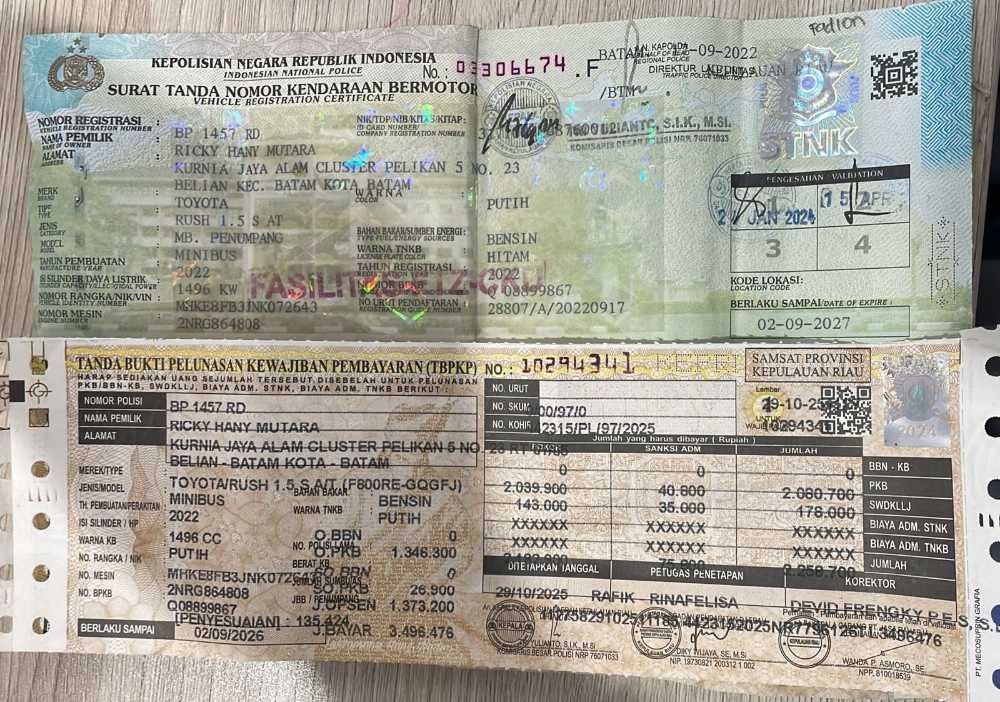 Fadion
KEPOLISIAN NEGARA REPUBLIK INDONESIA
INDONESIAN NATIONAL POLICE
No.: 03306674 .F
SURAT TANDA NOMOR KENDARAAN BERMOTOR
VEHICLE REGISTRATION CERTIFICATE
AN. KAPOLDA
REGIONAL POLICE
DIREKTUR
TRAFFIC POLICE DIRECTOR
NOMOR REGISTRASI
VEHICLE REGISTRATION NUMBER
BP 1457 RD
NIK/TDP/NIB/KITAS/KITAP:
ID CARD NUMBER/
COMPANY REGISTRATION NUMBER
S.I.K, M.SI.
KOMISARIS BESAR POLISI NRP 76071033
STNK
NAMA PEMILIK
NAME OF OWNER
RICKY HANY MUTARA
ALAMAT
ADDRESS
KURNIA JAYA ALAM CLUSTER PELIKAN 5 NO. 23
BELIAN KEC. BATAM KOTA BATAM
PENGESAHAN VALIDATION
JAN 2024
15 APR
3
4
MERK
BRAND
TOYOTA
WARNA
COLOR
PUTIH
TIPE
TYPE
RUSH 1.5 S AT
JENIS
CATEGORY
MB. PENUMPANG
BAHAN BAKAR/SUMBER ENERGI:
TYPE FUEL/ENERGY SOURCES
BENSIN
MODEL
MINIBUS
WARNA TNKB
LICENSE PLATE COLOR
HITAM
TAHUN PEMBUATAN
MANUFACTURE YEAR
2022
TAHUN REGISTRASI
2022
ISI SILINDER/DAYA LISTRIK
1496 KW
Q08899867
NOMOR RANGKA/NIK/VIN
MHKE8FB3JNK072643
NO URUT PENDAFTARAN
28807/A/20220917
NOMOR MESIN
ENGINE NUMBER
2NRG864808
KODE LOKASI:
LOCATION CODE
BERLAKU SAMPAI/DATE OF EXPIRE:
02-09-2027
STNK
TANDA BUKTI PELUNASAN KEWAJIBAN PEMBAYARAN (TBPKP)
NO.: 10294341
HARAP SEDIAKAN UANG SEJUMLAH TERSEBUT DISEBELAH UNTUK PELUNASAN
PKB/BBN-KB, SWDKLLJ, BIAYA ADM. STNK, BIAYA ADM. TNKB BERIKUT :
SAMSAT PROVINSI
KEPULAUAN RIAU
NOMOR POLISI
BP 1457 RD
NAMA PEMILIK
RICKY HANY MUTARA
ALAMAT
KURNIA JAYA ALAM CLUSTER PELIKAN 5 NO. 23 RT
BELIAN - BATAM KOTA - BATAM
NO. URUT
NO. SKUM
00/97/0
NO. KOHIR
2315/PL/97/2025
Lembar
1
UNTUK
Jumlah yang harus dibayar ( Rupiah )
POKOK
SANKSI ADM
JUMLAH
0
0
0
BBN - KB
2.039.900
40.800
2.080.700
PKB
143.000
35.000
178.000
SWDKLLJ
XXXXXX
XXXXXX
XXXXXX
BIAYA ADM. STNK
XXXXXX
XXXXXX
XXXXXX
BIAYA ADM. TNKB
JUMLAH
MEREK/TYPE
TOYOTA/RUSH 1.5 S A/T (F800RE-GQGFJ)
JENIS/MODEL
MINIBUS
BAHAN BAKAR
BENSIN
TH. PEMBUATAN/PERAKITAN
2022
WARNA TNKB
PUTIH
ISI SILINDER / HP
1496 CC
O.BBN
0
WARNA KB
PUTIH
NO. POLISI LAMA
O.PKB
1.346.300
NO. RANGKA / NIK
BERAT KB
BBN
0
NO. MESIN
2NRG864808
26.900
NO. BPKB
Q08899867
JBB / PENUMPANG
J.OPSEN
1.373.200
[PENYESUAIAN] : 135.424
BERLAKU SAMPAI
02/09/2026
J.BAYAR
3.496.476
DITETAPKAN TANGGAL
PETUGAS PENETAPAN
KOREKTOR
29/10/2025
RAFIK - RINAFELISA
DEVID FRENGKY P.E
KOMISARIS BESAR POLISI NRP 76071033
DIKY WIJAYA, SE, M.Si
NIP. 19730821 200312 1 002
WANDA P. ASMORO, SE.
NPP. 810018539
PT. MECOSUPRIN GRAFIA